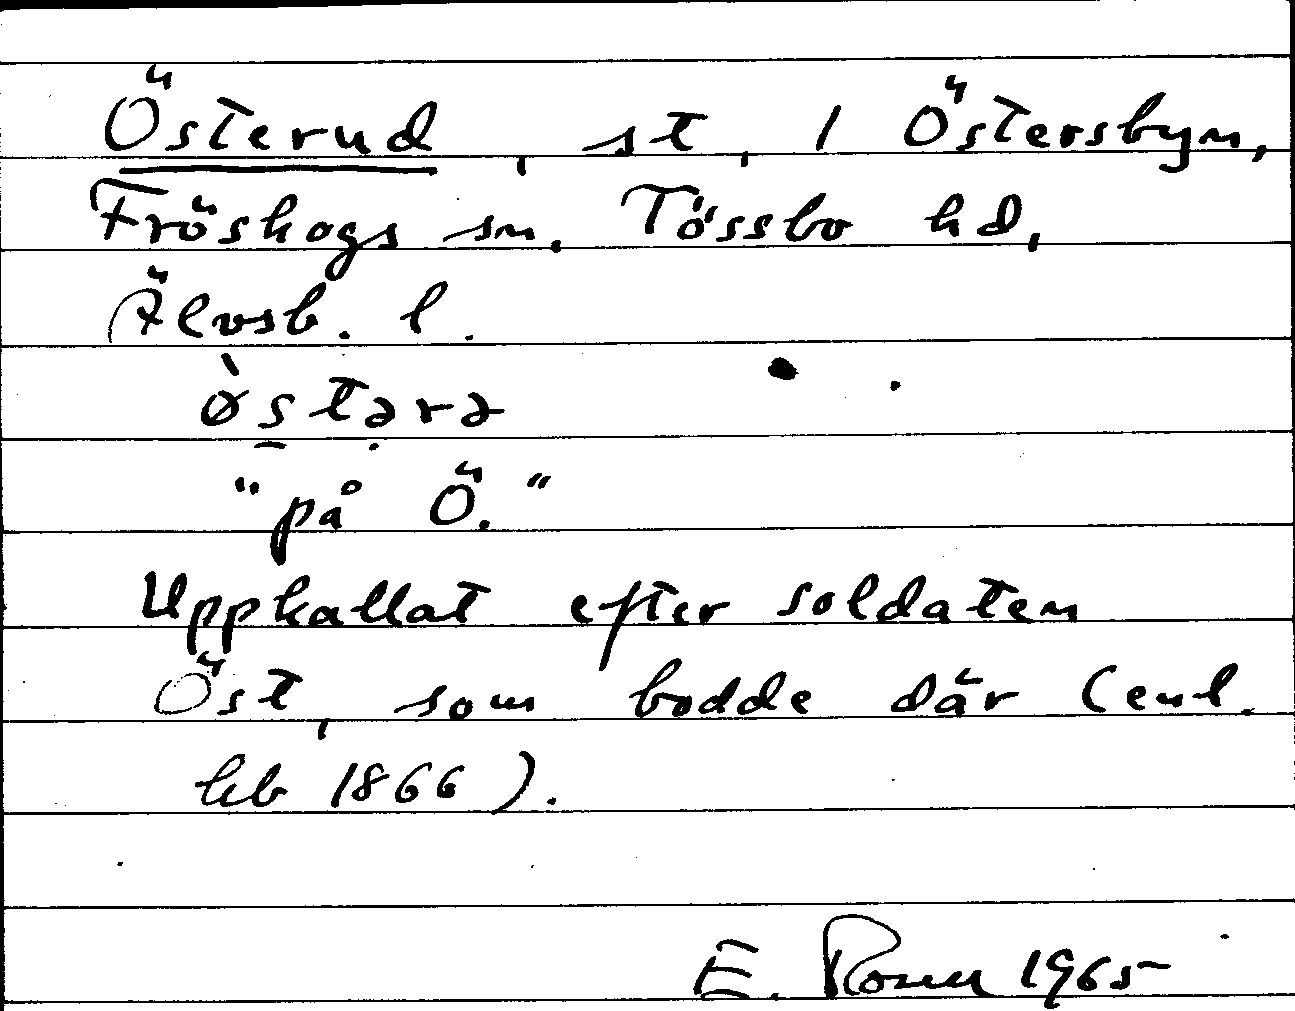 Österud, st, 1 Östersbyn,
Fröskogs sn. Tössbo hd,
Älvsb. l.
ò̷s̠tərə
"på Ö."
Uppkallat efter soldaten
Öst, som bodde där (enl.
kb 1866).
E. Rosell 1965